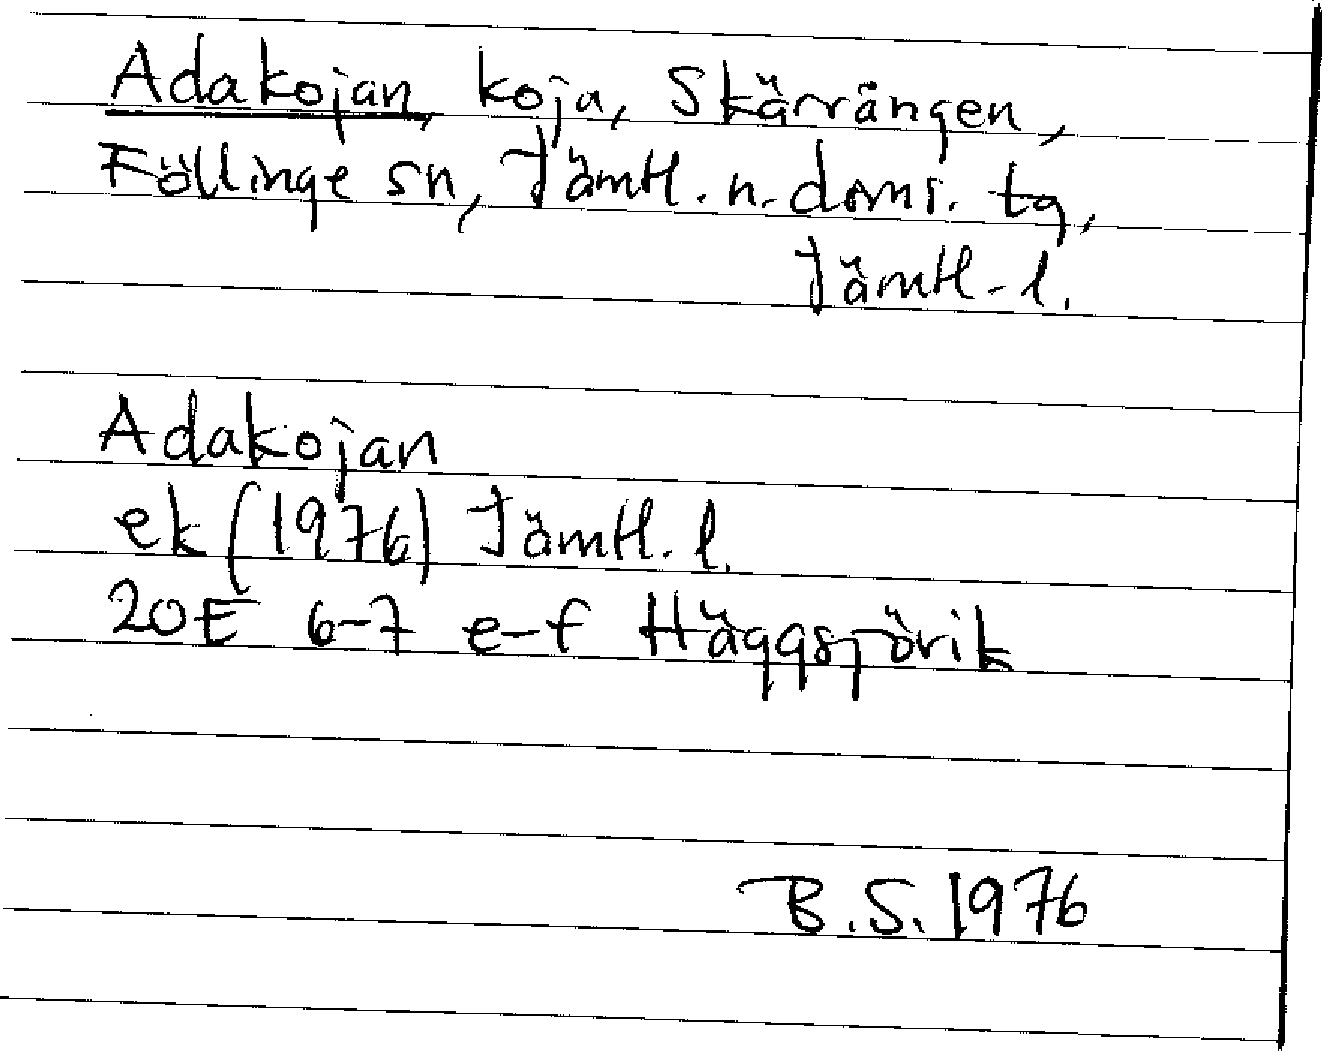 Adakojan, koja, Skärvången,
Föllinge sn, Jämtl. n. doms. tg,
Jämtl. l.
Adakojan
ek (1976) Jämtl. l.
20E 6-7 e-f Häggsjövik
B.S. 1976